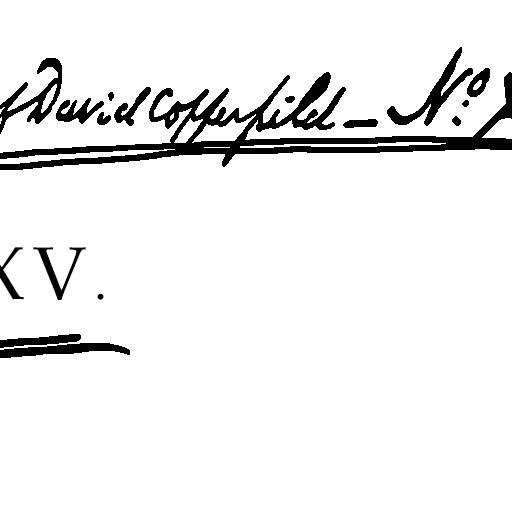 f David Copperfield — No. X
XV.